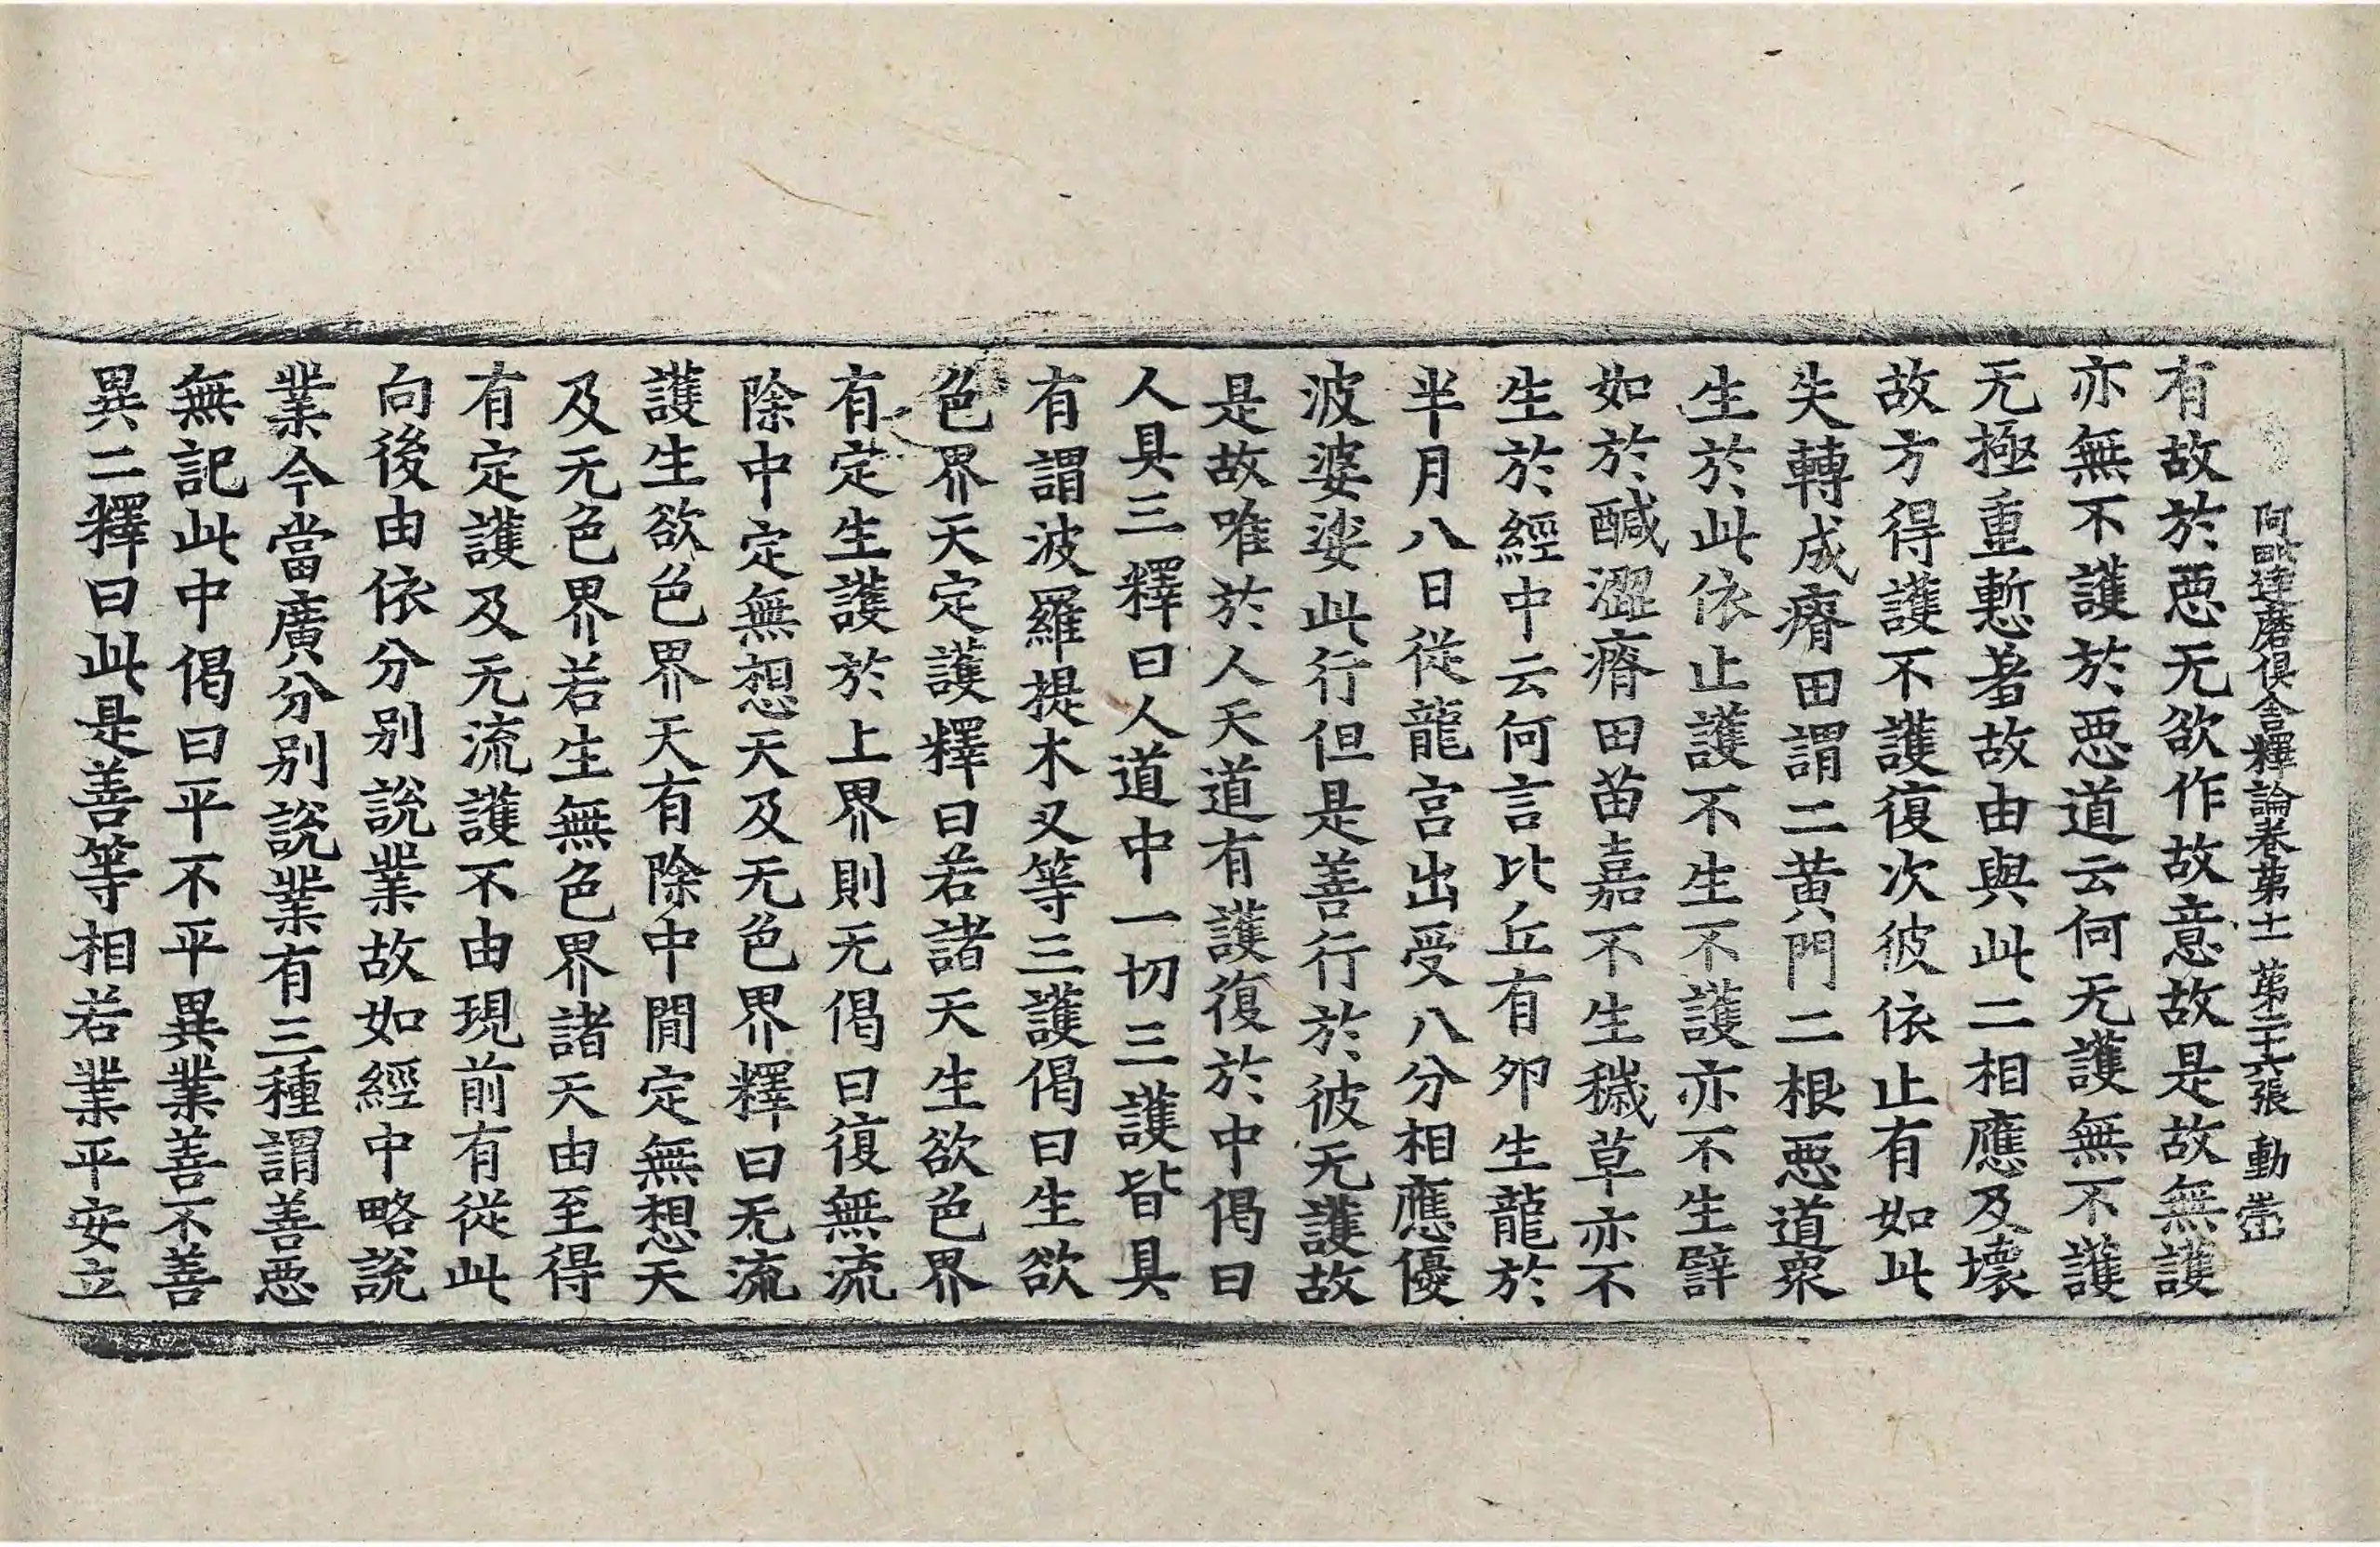 阿毗達磨俱舍釋論卷第十一 第二十六張 動
有故於惡无欲作故意故是故無護
亦無不護於惡道云何无護無不護
无極重慙著故由與此二相應及壞
故方得護不護復次彼依止有如此
失轉成瘠田謂二黃門二根惡道衆
生於此依止護不生不護亦不生譬
如於醎澀瘠田苗嘉不生穢草亦不
生於經中云何言比丘有卵生龍於
半月八日從龍宮出受八分相應優
波婆娑此行但是善行於彼无護故
是故唯於人天道有護復於中偈曰
人具三釋曰人道中一切三護皆具
有謂波羅提木叉等三護偈曰生欲
色界天定護釋曰若諸天生欲色界
有定生護於上界則无偈曰復無流
除中定無想天及无色界釋曰无流
護生欲色界天有除中間定無想天
及无色界若生無色界諸天由至得
有定護及无流護不由現前有從此
向後由依分別說業故如經中略說
業今當廣分別說業有三種謂善惡
無記此中偈曰平不平異業善不善
異二釋曰此是善等相若業平安立